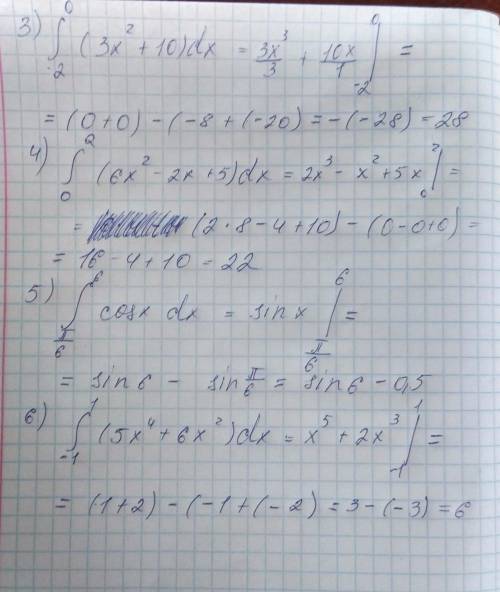 3) ∫₋₂⁰ (3x² + 10)dx = 3x³/3 + 10x/1 |₋₂⁰ =
= (0+0) - (-8 + (-20) = -(-28) = 28
4) ∫₀² (6x² - 2x + 5)dx = 2x³ - x² + 5x |₀² =
= (2·8 - 4 + 10) - (0 - 0 + 0) =
= 16 - 4 + 10 = 22
5) ∫_{π/6}^{6} cosx dx = sinx |_{π/6}^{6} =
= sin6 - sin π/6 = sin6 - 0,5
6) ∫₋₁¹ (5x⁴ + 6x²)dx = x⁵ + 2x³ |₋₁¹ =
= (1+2) - (-1 + (-2) = 3 - (-3) = 6